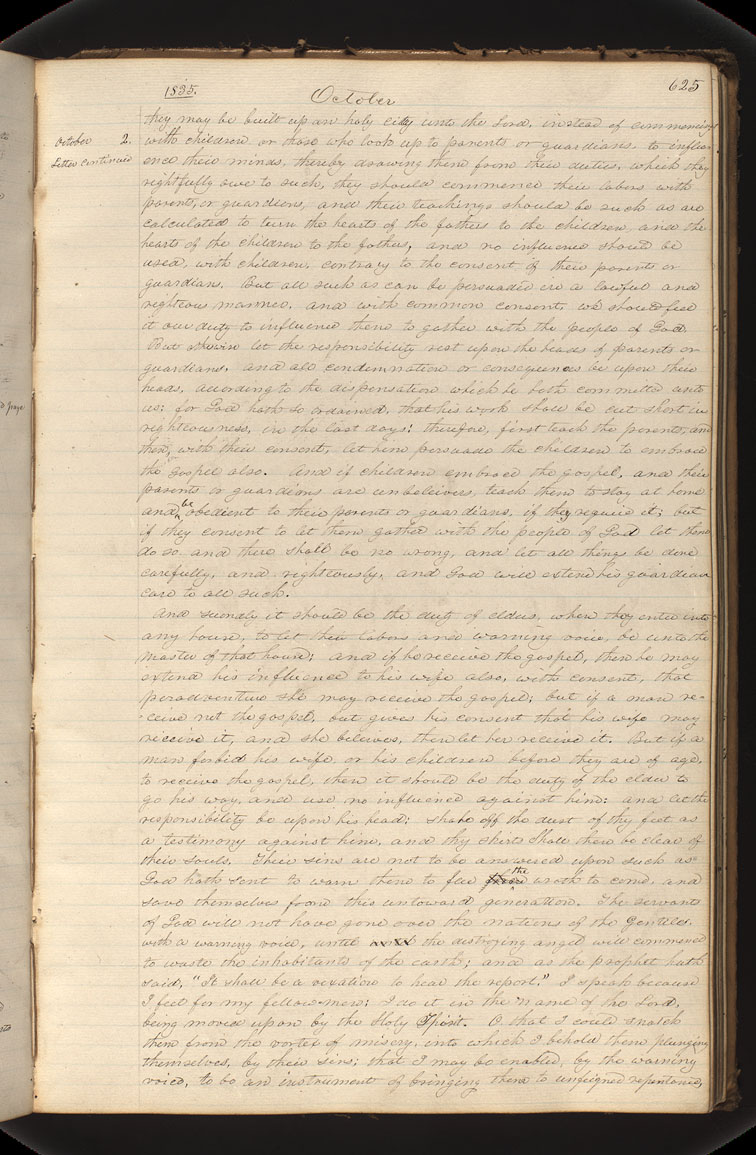 1835.
October
625
October 2.
Letter continued
they may be built up an holy city unto the Lord, instead of commencing
with children, or those who look up to parents or guardians, to influ-
ence their minds, thereby drawing them from their duties, which they
rightfully owe to such, they should commence their labors with
parents, or guardians, and their teachings should be such as are
calculated to turn the hearts of the fathers to the children, and the
hearts of the children to the fathers, and no influence should be
used, with children, contrary to the consent of their parents or
guardians. But all such as can be persuaded in a lawful and
righteous manner, and with common consent, we should feel
it our duty to influence them to gather with the people of God.
But otherwise let the responsibility rest upon the heads of parents or
guardians, and all condemnation or consequences be upon their
heads, according to the dispensation which he hath committed unto
us: for God hath so ordained, that his work shall be cut short in
righteousness, in the last days: therefore, first teach the parents, and
then, with their consent, let him persuade the children to embrace
the gospel also. And if children embrace the gospel, and their
parents or guardians are unbelievers, teach them to stay at home
and be obedient to their parents or guardians, if they require it; but
if they consent to let them gather with the people of God let them
do so and there shall be no wrong, and let all things be done
carefully, and righteously, and God will extend his guardian
care to all such.
And secondly it should be the duty of elders, when they enter into
any house, to let their labors and warning voice, be unto the
master of that house; and if he receive the gospel, then he may
extend his influence to his wife also, with consent, that
peradventure she may receive the gospel; but if a man re-
-ceive not the gospel, but gives his consent that his wife may
receive it, and she believes, then let her receive it. But if a
man forbid his wife, or his children before they are of age,
to receive the gospel, then it should be the duty of the elder to
go his way, and use no influence against him: and let the
responsibility be upon his head; shake off the dust of thy feet as
a testimony against him, and thy skirts shall then be clear of
their souls. Their sins are not to be answered upon such as
God hath sent to warn them to flee the wrath to come, and
save themselves from this untoward generation. The servants
of God will not have gone over the nations of the Gentiles,
with a warning voice, until the destroying angel will commence
to waste the inhabitants of the earth; and as the prophet hath
said, "It shall be a vexation to hear the report." I speak because
I feel for my fellow-men: I do it in the name of the Lord,
being moved upon by the Holy Spirit. O that I could snatch
them from the vortex of misery, into which I behold them plunging
themselves, by their sins; that I may be enabled, by the warning
voice, to be an instrument of bringing them to unfeigned repentance,